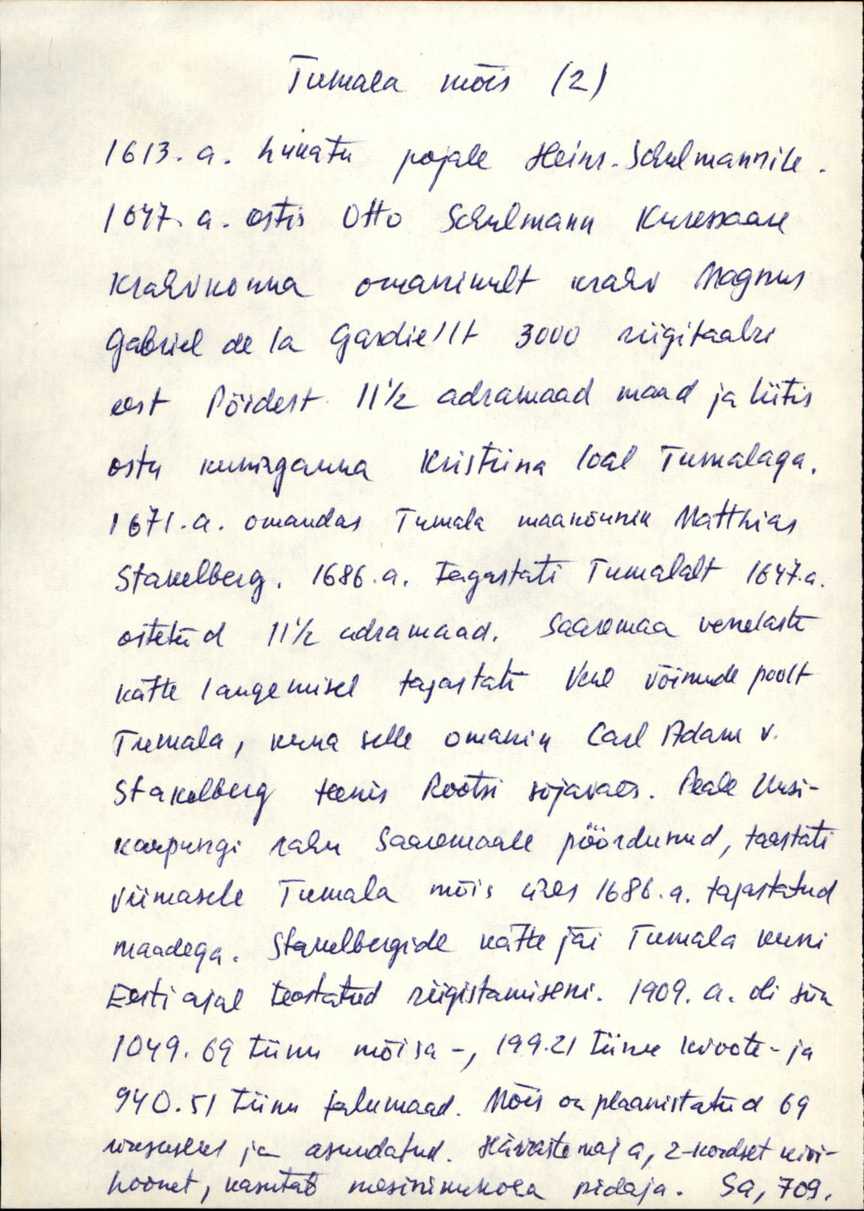 Tumala mõis (2)
1613. a. hinnatu pojale Heinr. Schulmannile.
1647. a. ostis Otto Schulmann Kuressaare
Krahvkonna omanikult krahv Magnus
Gabriel de la Gardie'lt 3000 riigitaalri
eest Pöidest 11½ adramaad maad ja liitis
ostu kuninganna Kristiina loal Tumalaga.
1671. a. omandas Tumala maanõunik Matthias
Stakelberg. 1686. a. tagastati Tumalalt 1647. a.
ostetud 11½ adramaad. Saaremaa venelaste
kätte langemisel tagastati Vene võimude poolt
Tumala, kuna selle omanik Carl Adam v.
Stakelberg teenis Rootsi sõjaväes. Peale Uusi-
kaupungi rahu Saaremaale pöördunud, taastati
viimasele Tumala mõis ühes 1686. a. tagastatud
maadega. Stakelbergide kätte jäi Tumala kuni
Eesti ajal teostatud riigistamiseni. 1909. a. oli siin
1049.69 tiinu mõisa-, 199.21 tiinu kvoote- ja
940.51 tiinu talumaad. Mõis on plaanistatud 69
üksuseks ja asundatud. Härrastemaja, 2-kordset kivi-
hoonet, kasutab mesinikukoha pidaja. Sa, 709.